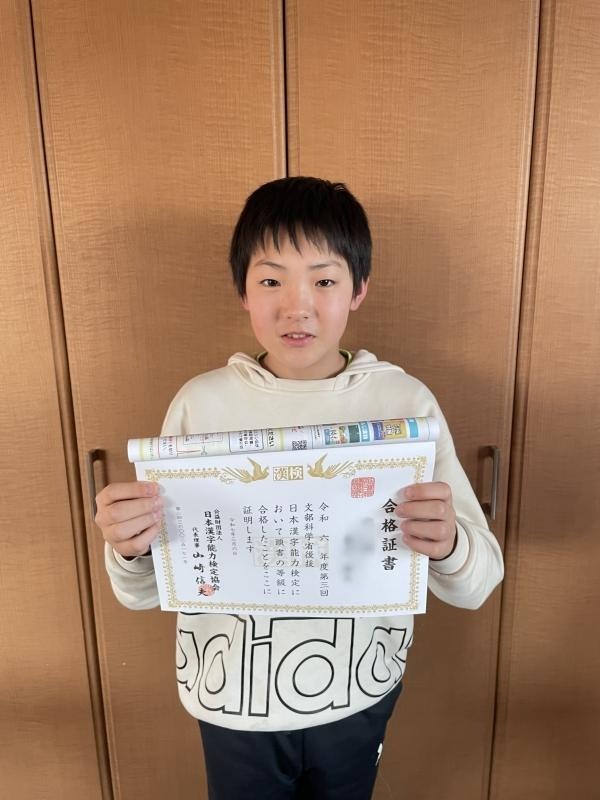 漢検
合格証書
令和 六 年度第三回
文部科学省後援
日本漢字能力検定に
おいて頭書の等級に
合格したことをここに
証明します
令和七年二月
公益財団法人
日本漢字能力検定協会
代表理事 山崎信夫
adidas